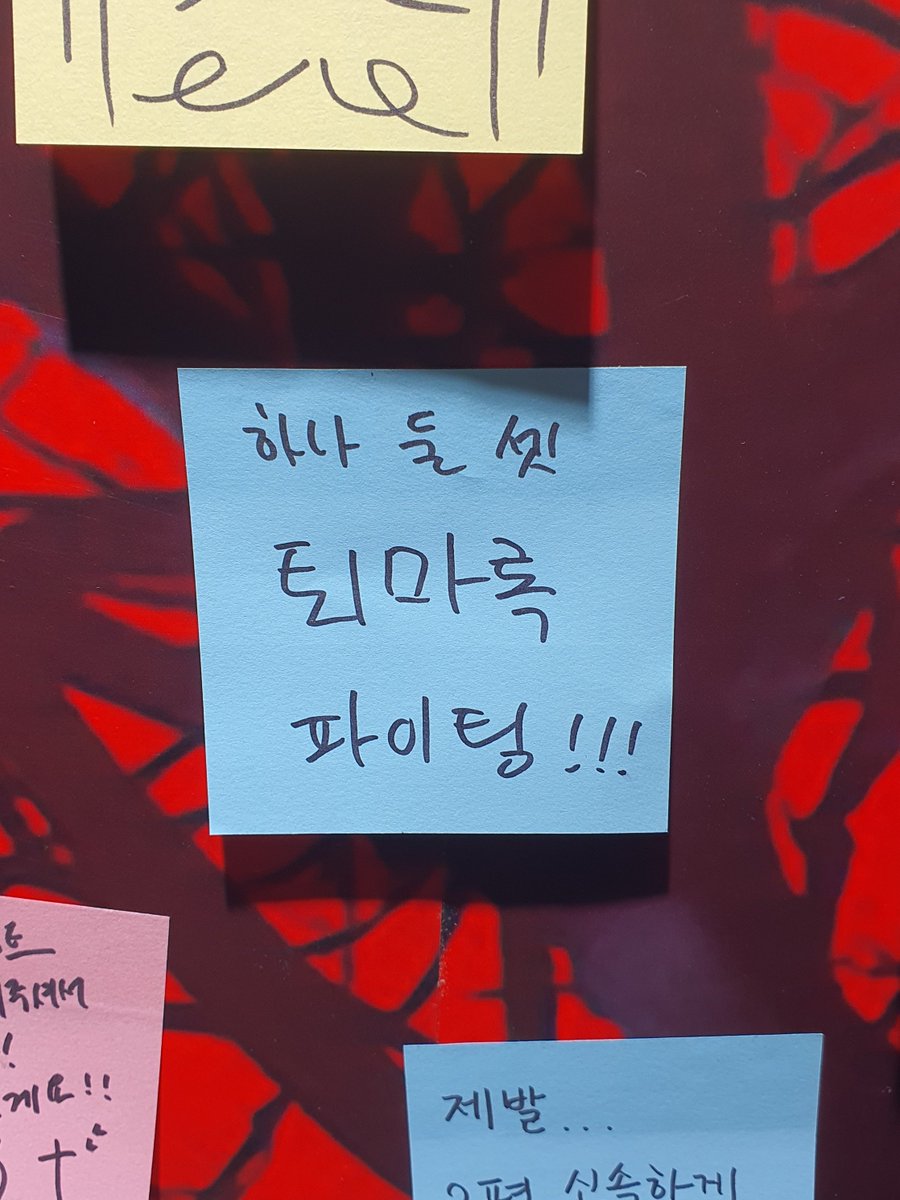 하나 둘 셋
퇴마록
파이팅!!!
주셔서
!
게요!!
제발...
2편 신속하게